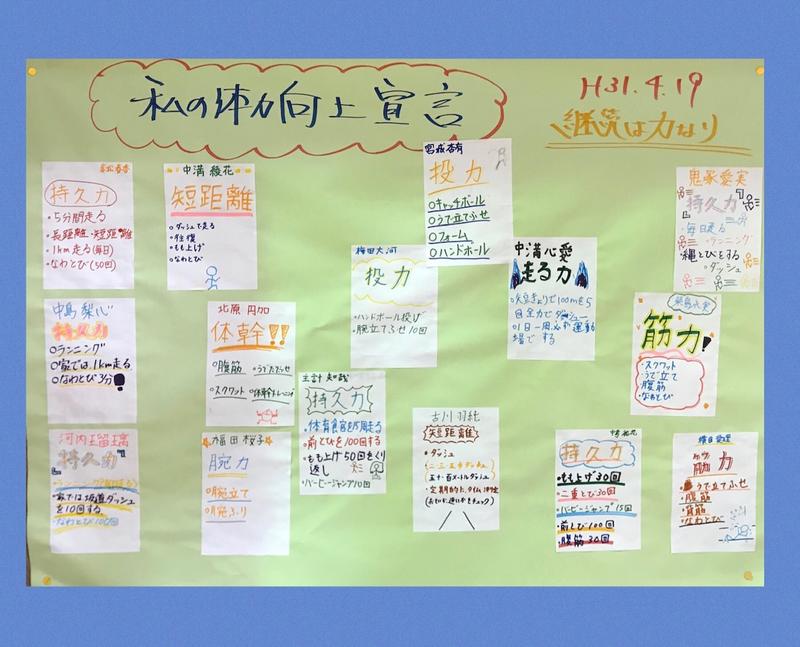 私の体力向上宣言
H31.4.19
継続は力なり
持久力
・5分間走る
・長距離・短距離
・1km走る(毎日)
・なわとび(50回)
中溝 綾花
短距離
○ダッシュで走る
○往復
○もも上げ
○なわとび
宮城杏有
投力
○キャッチボール
○うで立てふせ
○フォーム
○ハンドボール
鬼塚愛実
持久力
・毎日走る
・ランニング
・縄とびをする
・ダッシュ
梅田大河
投力
・ハンドボール投げ
・腕立てふせ10回
中溝心愛
走る力
100mを5
回全力でダッシュ
○1日一周必ず運動
場でする
中島 梨心
持久力
○ランニング
○家では、1km走る
○なわとび3分!
北原 円加
体幹!!
○腹筋
○うでたてふせ
○スクワット
○体幹トレーニング
筋力!
・スクワット
・うで立て
・腹筋
・なわとび
持久力
・体育倉官を5周走る
・前とびを100回する
・もも上げ50回をくり
返し
・バーピージャンプ10回
河内瑠璃
『持久力』
・家では坂道ダッシュ
を10回する
・なわとび100回
福田 桜子
腕力
・腕立て
・腕ふり
古川 羽純
短距離
・ダッシュ
五十・百メートルダッシュ
・定期的にタイム測定
持久力
・もも上げ30回
・二重とび30回
・バーピージャンプ15回
・前とび100回
・腹筋30回
筋力
・うで立てふせ
・腹筋
・背筋
・なわとび